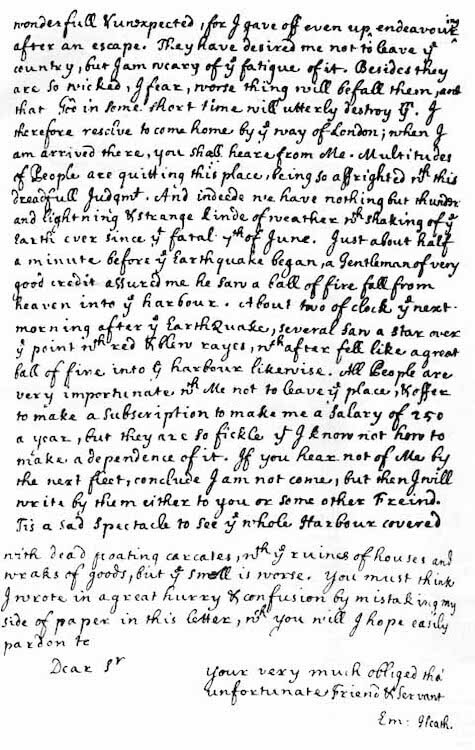 wonderfull & unexpected, for I gave off even up endeavouring
after an escape. They have desired me not to leave yᵉ
country, but I am weary of yᵉ fatigue of it. Besides they
are so wicked, I fear, worse thing will befall them, and
that God in some short time will utterly destroy yᵐ. I
therefore resolve to come home by yᵉ way of London; when I
am arrived there, you shall heare from Me. Multitudes
of People are quitting this place, being so affrighted wᵗʰ this
dreadfull Judgmᵗ. And indeede we have nothing but thunder
and lightning & strange kinde of weather wᵗʰ shaking of yᵉ
Earth ever since yᵉ fatal 7th of June. Just about half
a minute before yᵉ Earthquake began, a Gentleman of very
good credit assured me he saw a ball of fire fall from
heaven into yᵉ harbour. About two of clock yᵉ next
morning after yᵉ EarthQuake, several saw a star over
yᵉ point wᵗʰ red & blew rayes, wᶜʰ after fell like a great
ball of fire into yᵉ harbour likewise. All People are
very importunate wᵗʰ Me not to leave yᵉ place, & offer
to make a Subscription to make me a Salary of 250
a year, but they are so fickle yᵗ I know not how to
make a dependence of it. If you hear not of Me by
the next fleet, conclude I am not come, but then I will
write by them either to you or some other Freind.
Tis a sad Spectacle to see yᵉ whole Harbour covered
with dead floating carcases, wᵗʰ yᵉ ruines of houses and
wraks of goods, but yᵉ smell is worse. You must think
I wrote in a great hurry & confusion by mistaking my
side of paper in this letter, wᶜʰ you will I hope easily
pardon to
Dear Sʳ
your very much obliged tho'
unfortunate Friend & Servant
Em: Heath.